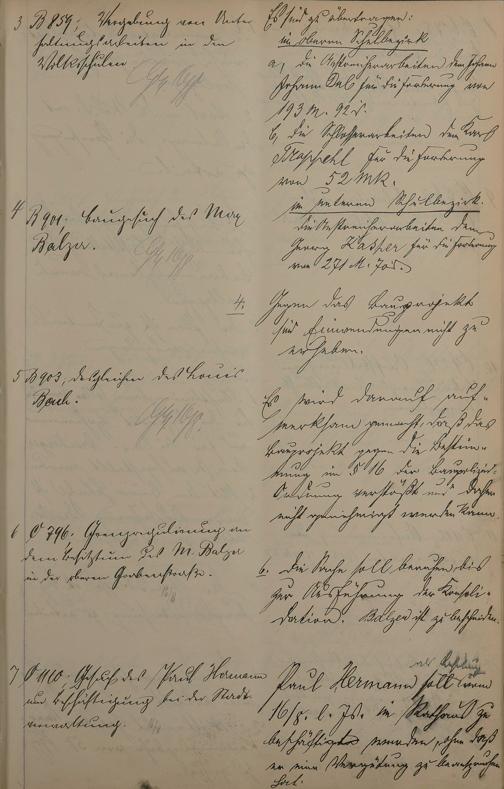 3 B 859. Vergebung von Unter-
haltungsarbeiten in den
Volksschulen
Es sind zu übertragen:
im oberen Schulbezirk
a, die Anstreicherarbeiten dem Johann
Johann für die Forderung von
193 M. 92 d.
b, die Schlosserarbeiten dem Karl
für die Forderung
von 52 Mk.
im unteren Schulbezirk.
die Anstreicherarbeiten dem
Georg Kasper für die Forderung
von 271 M. 70 d.
4 B 901. Baugesuch des Max
Balzer.
4. Gegen das Bauprojekt
sind Einwendungen nicht zu
erheben.
5 B 903, desgleichen des Louis
Es wird darauf auf-
merksam gemacht, daß das
Bauprojekt gegen die Bestim-
mung im § 16 der Baupolizei-
Ordnung verstößt und daher
nicht genehmigt werden kann
6 C 796. Grenzregulierung an
dem Besitztum des M. Balzer
in der oberen Grabenstraße.
6. Die Sache soll beruhen bis
zur Ausführung der Konsoli-
dation. Balzer ist zu bescheiden.
7 C 1110, Gesuch des Paul Hermann
um Beschäftigung bei der Stadt-
verwaltung.
Paul Hermann soll vom
16/8. l. Js. im Rathaus zu
beschäftigt werden, ohne daß
er eine Vergütung zu beanspruchen
hat.